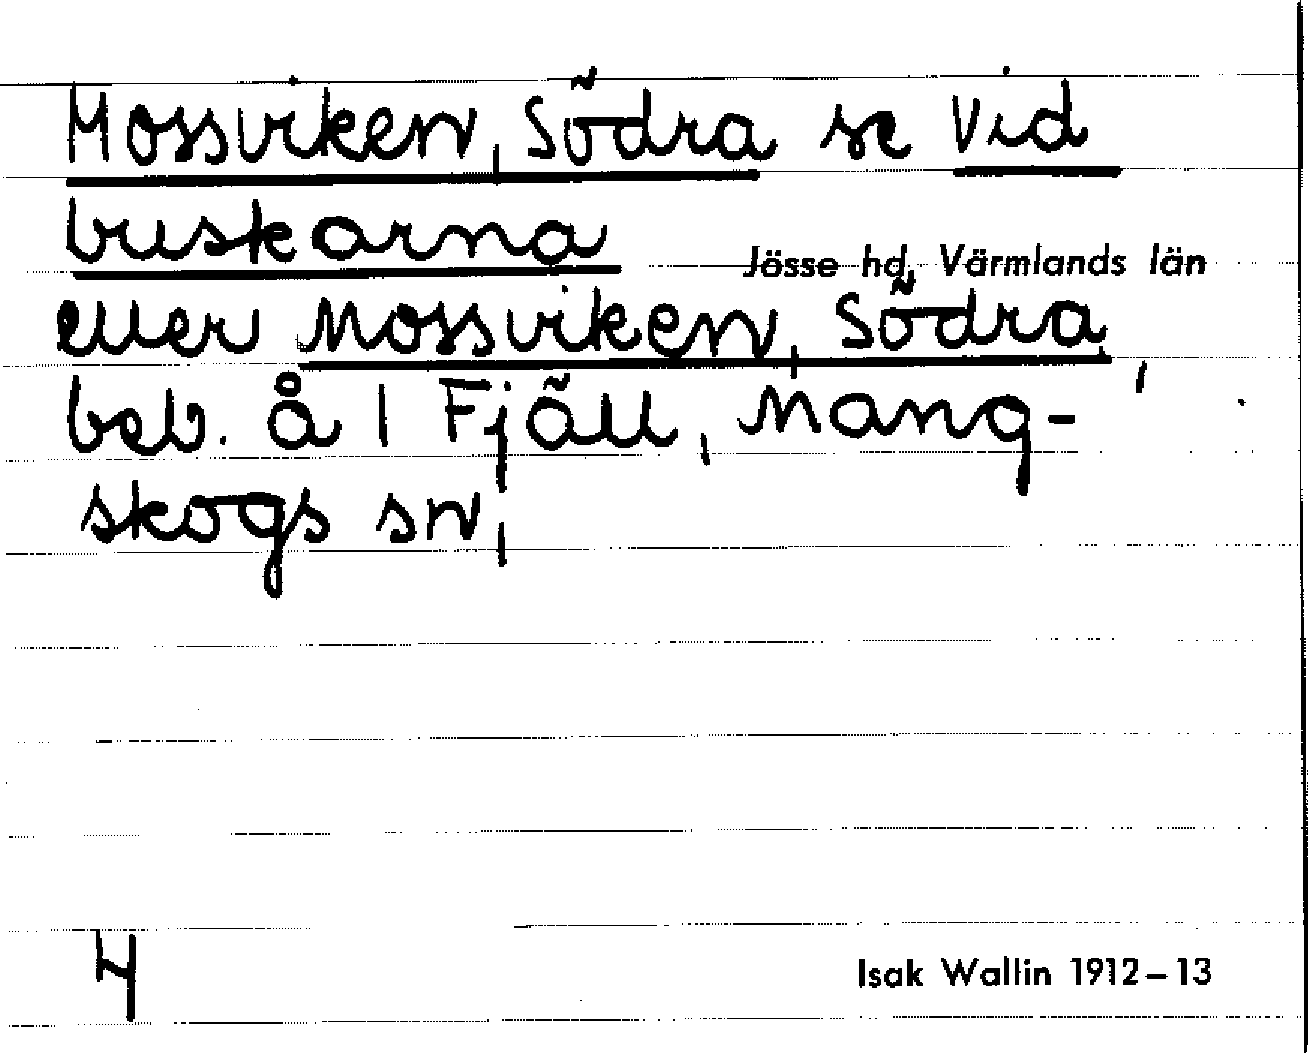 Mossviken, Södra se Vid
buskarna
Jösse hd, Värmlands län
eller Mossviken, Södra,
beb. å 1 Fjäll, Mang-
skogs sn,
4
Isak Wallin 1912–13